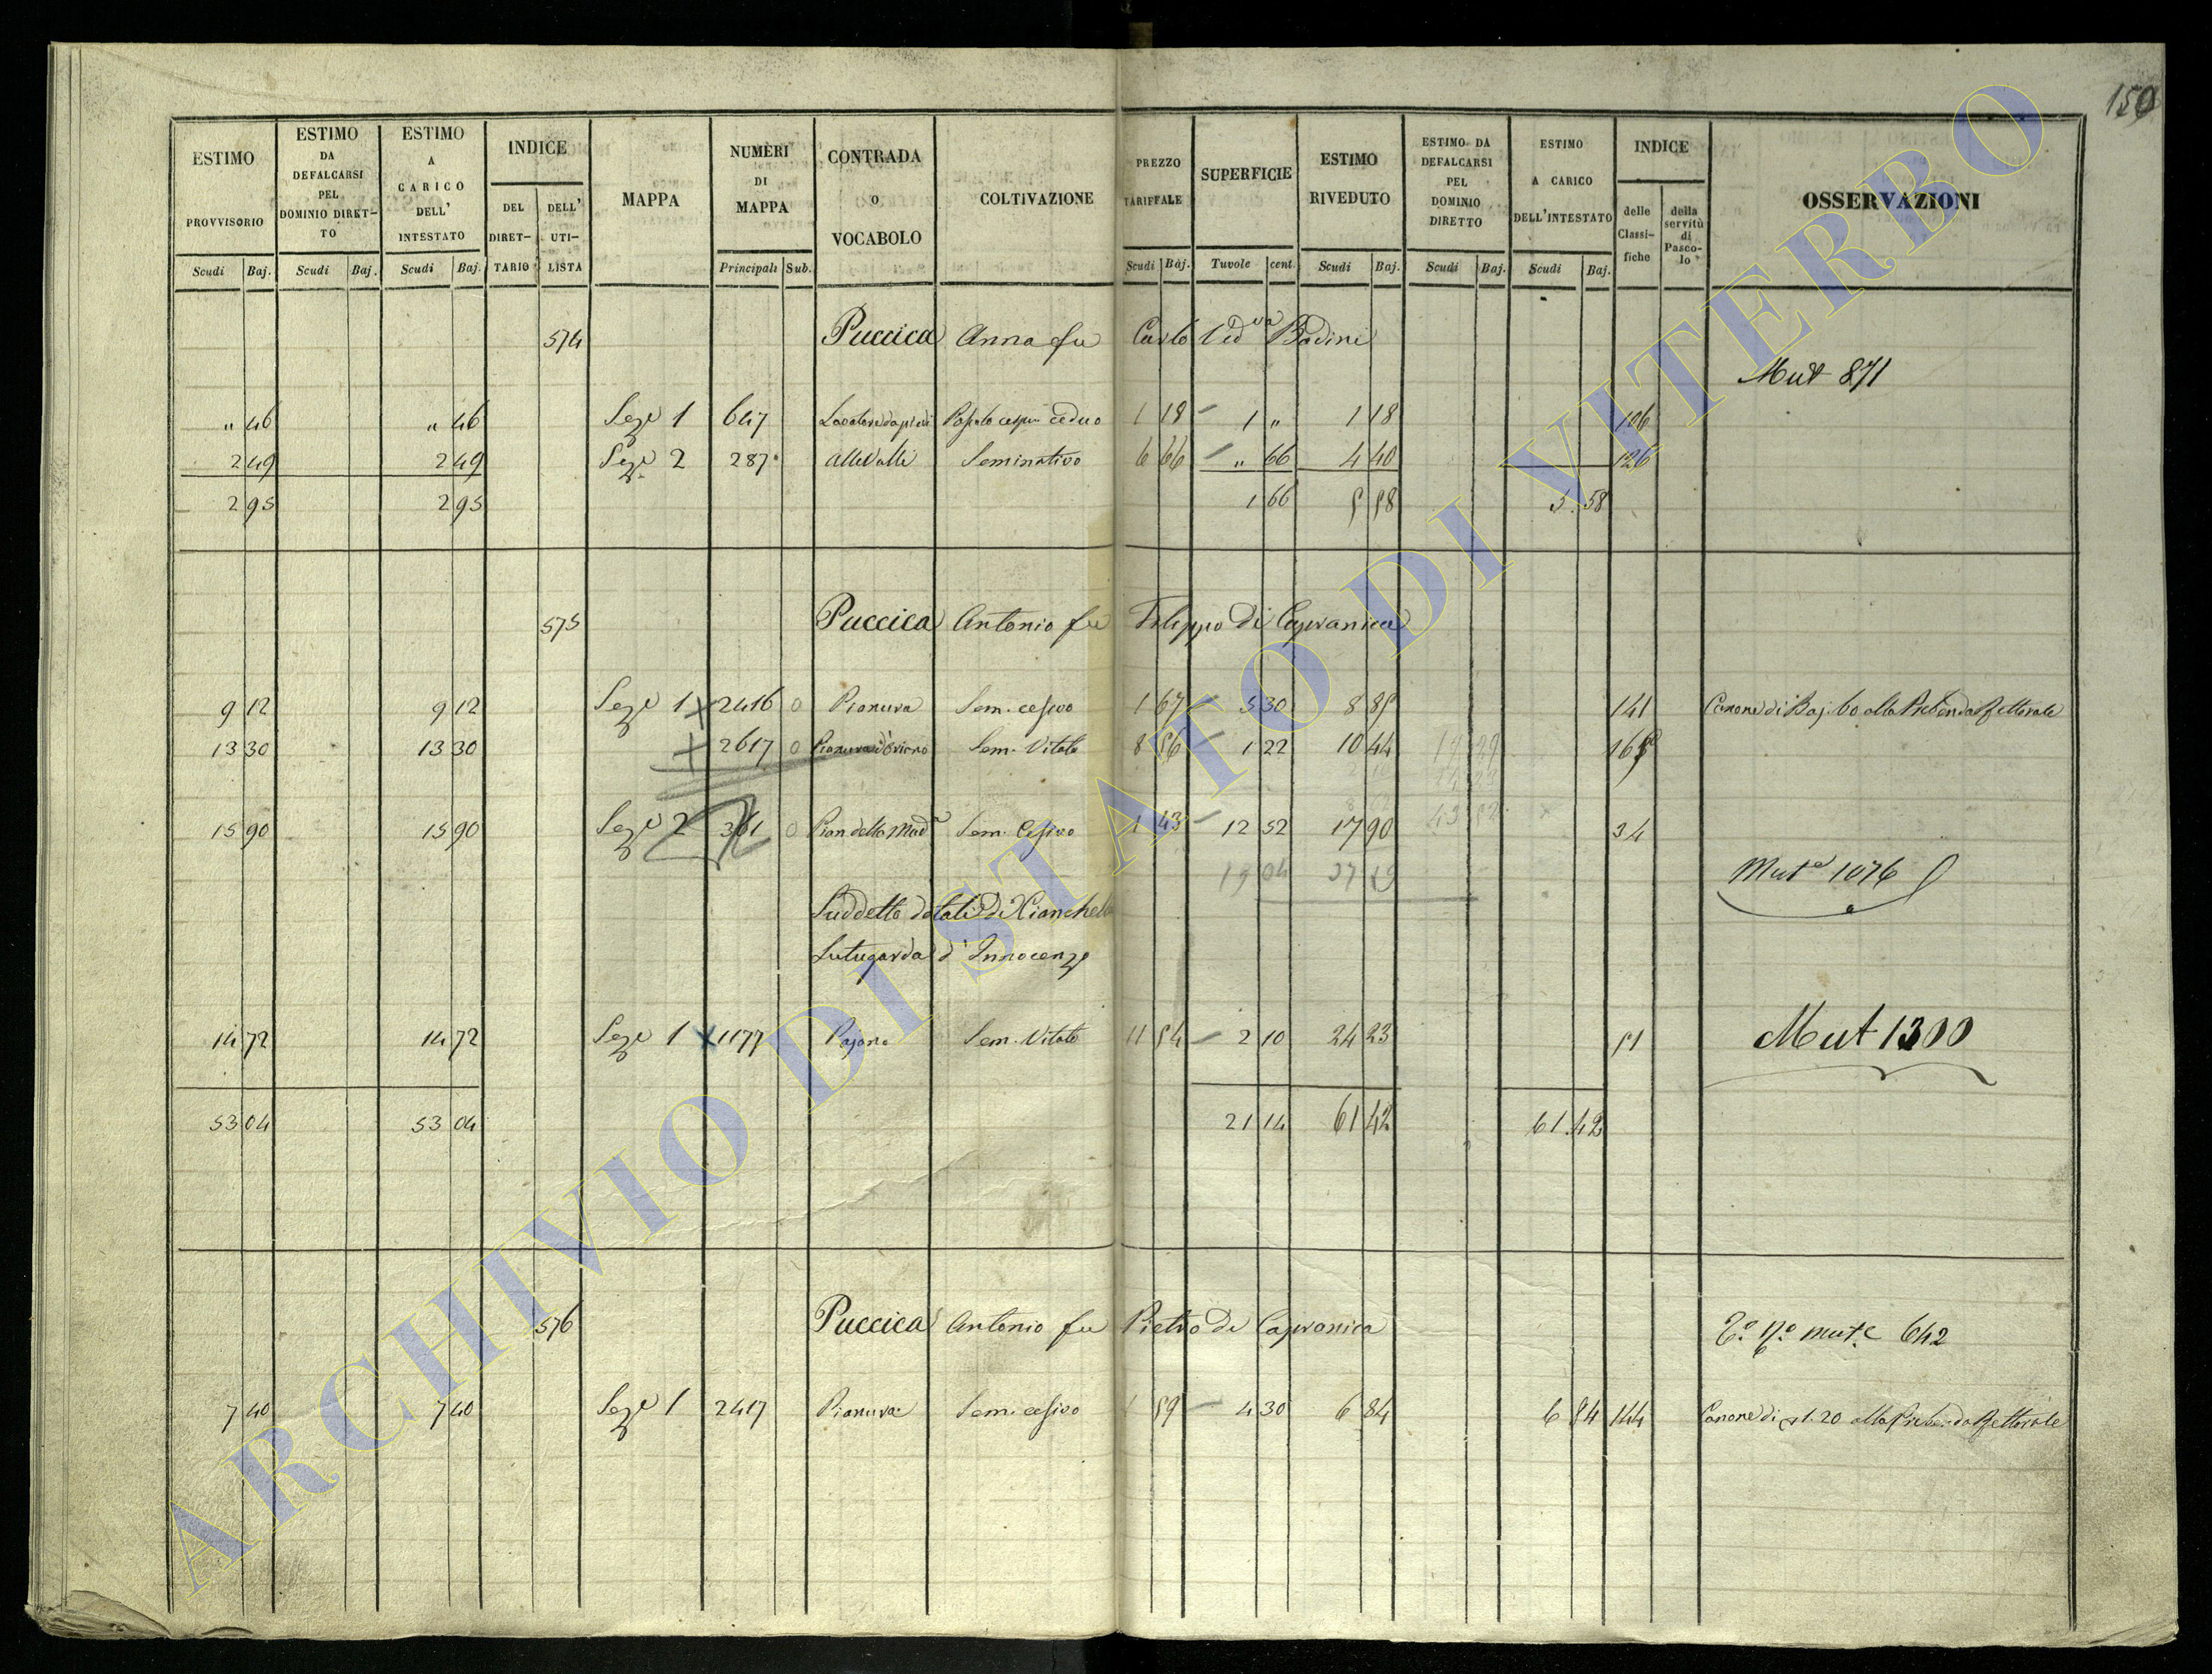 159
ESTIMO PROVVISORIO Scudi Baj.
ESTIMO DA DEFALCARSI PEL DOMINIO DIRETTO Scudi Baj.
ESTIMO A CARICO DELL' INTESTATO Scudi Baj.
INDICE DEL DIRETTARIO DELL' UTILISTA
MAPPA
NUMERI DI MAPPA Principali Sub.
CONTRADA o VOCABOLO
COLTIVAZIONE
PREZZO TARIFFALE Scudi Baj.
SUPERFICIE Tavole cent.
ESTIMO RIVEDUTO Scudi Baj.
ESTIMO DA DEFALCARSI PEL DOMINIO DIRETTO Scudi Baj.
ESTIMO A CARICO DELL'INTESTATO Scudi Baj.
INDICE delle Classifiche della servitù di Pascolo
OSSERVAZIONI
574 Puccica Anna fu Carlo Ved va Badini
Mut 871
" 46 " 46 Seze 1 647 ceduo 1 18 1 " 1 18 106
2 49 2 49 Seze 2 287 alle Valli Seminativo 6 66 " 66 4 40 126
2 95 2 95 1 66 5 58 5.58
575 Puccica Antonio fu Filippo di Capranica
9 12 9 12 Seze 1 2416 0 Pianura Sem. cesivo 1 67 5 30 8 85 141 Canone di Baj. 60 alla Prebenda Rettorale
13 30 13 30 2617 0 Pianura Sem. Vitato 8 56 1 22 10 44
15 90 15 90 Seze 2 361 0 Pian della Mad a Sem. Cesivo 1 43 12 52 17 90 34
19 04 37 19
Mut e 1076
Suddetto dotali di Cianchella
Lutugarda d' Innocenzo
14 72 14 72 Seze 1 1177 Pajano Sem. Vitato 11 54 2 10 24 23 51 Mut 1300
53 04 53 04 21 14 61 42 61.42
576 Puccica Antonio fu Pietro di Capranica
mut.e 642
7 40 7 40 Seze 1 2417 Pianura Sem. cesivo 1 59 4 30 6 84 6 84 144 Canone di 1.20 alla Prebenda Rettorale
ARCHIVIO DI STATO DI VITERBO